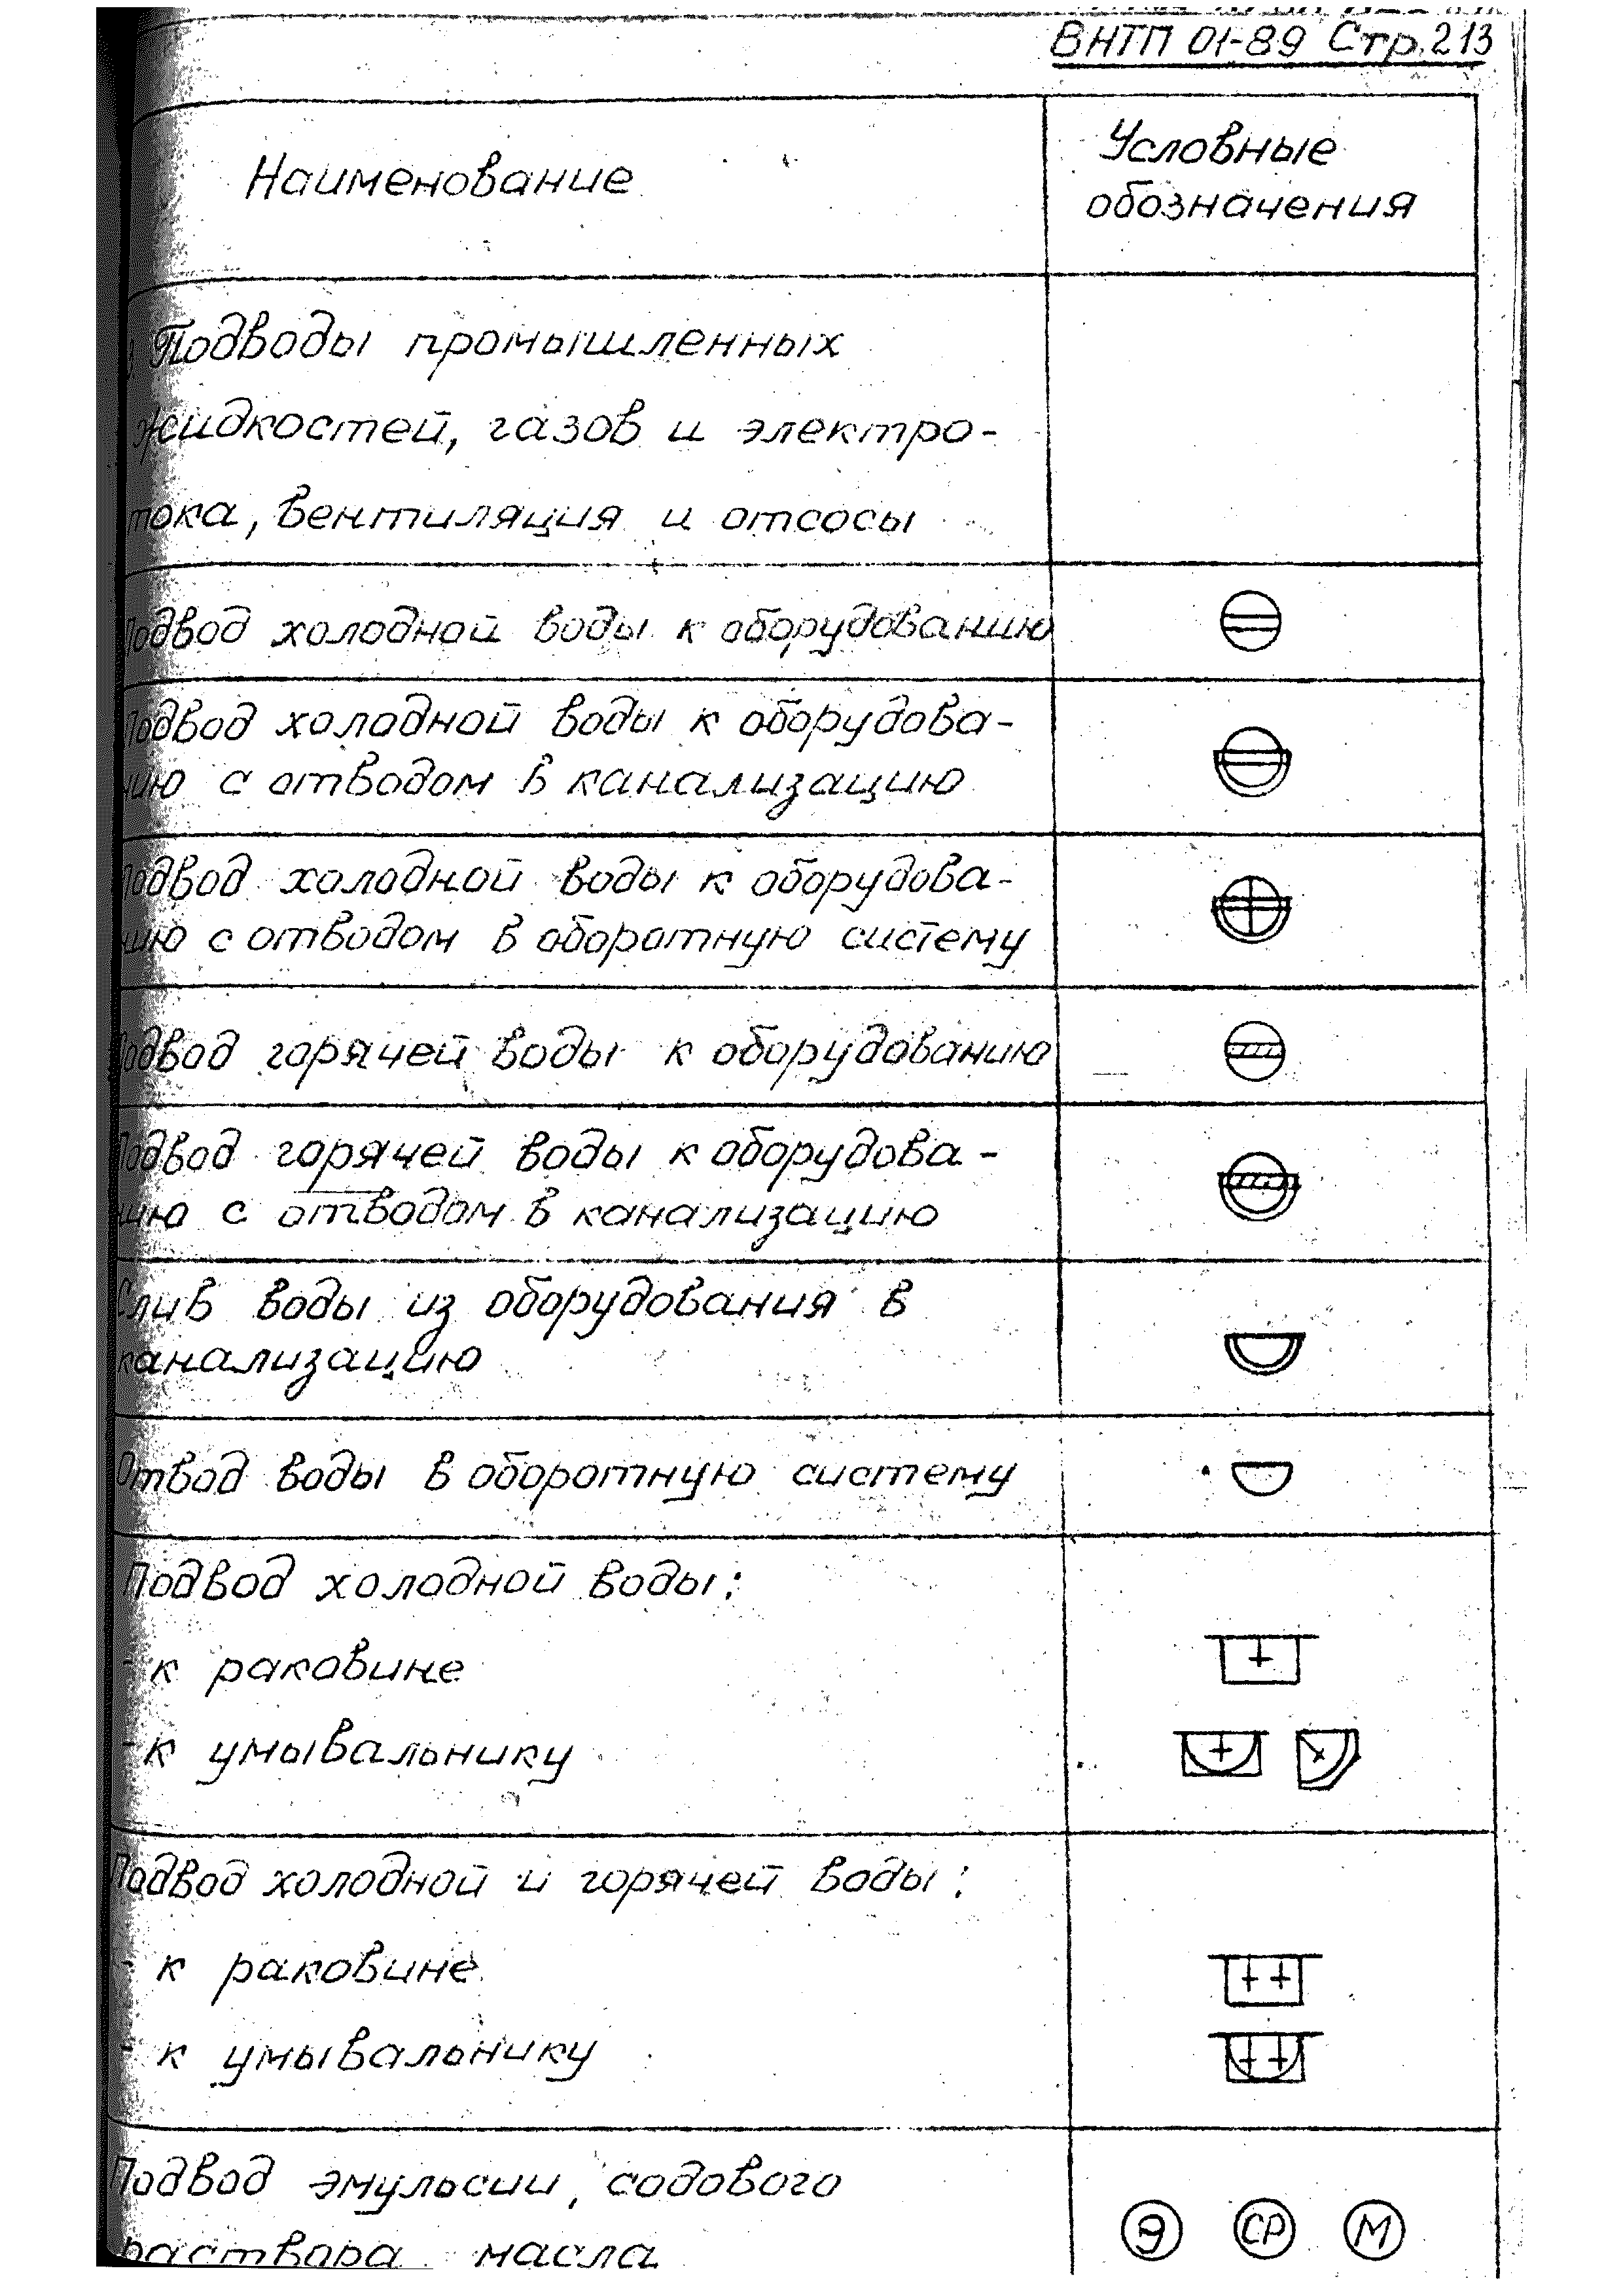 ВНТП 01-89 Стр.213
Наименование
Условные
обозначения
Подводы промышленных
жидкостей, газов и электро-
тока, вентиляция и отсосы
Подвод холодной воды к оборудованию
Подвод холодной воды к оборудова-
нию с отводом в канализацию
Подвод холодной воды к оборудова-
нию с отводом в оборотную систему
Подвод горячей воды к оборудованию
Подвод горячей воды к оборудова-
нию с отводом в канализацию
Слив воды из оборудования в
канализацию
Отвод воды в оборотную систему
Подвод холодной воды:
- к раковине
- к умывальнику
Подвод холодной и горячей воды:
- к раковине
- к умывальнику
Подвод эмульсии, содового
раствора масла
Э СР М